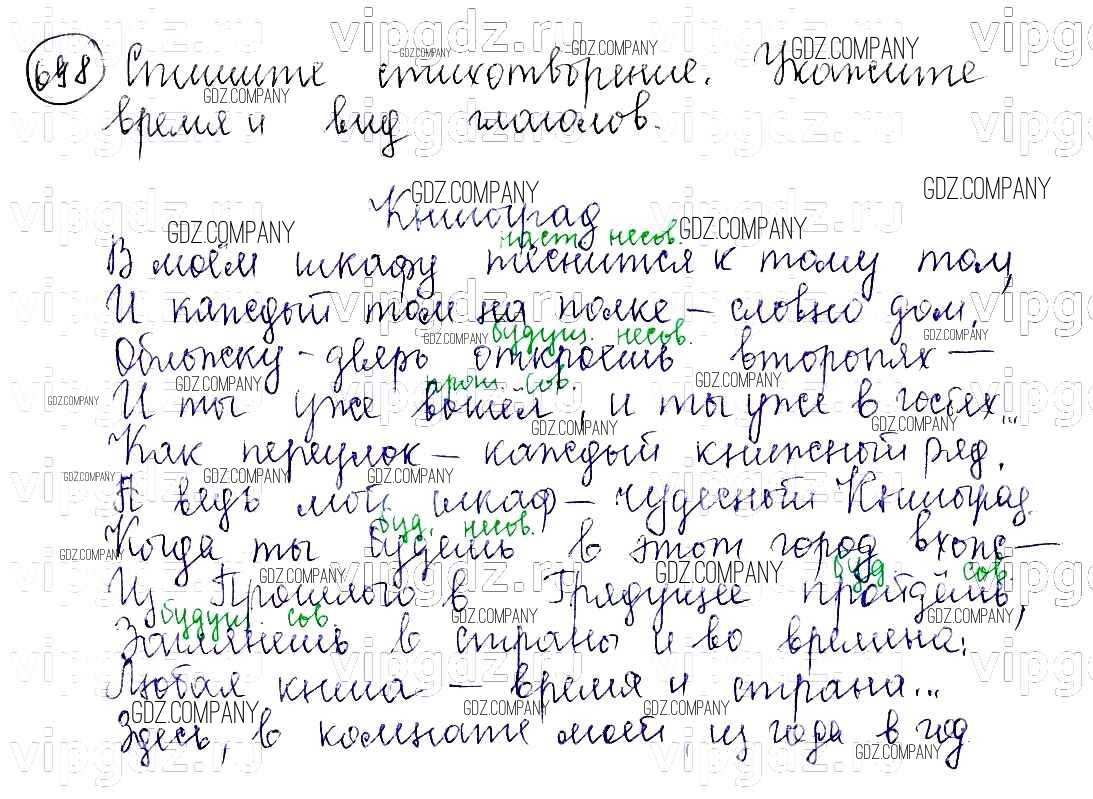 698 Спишите стихотворение. Укажите
время и вид глаголов.
Книгоград
наст. несов.
В моём шкафу теснится к тому том,
И каждый том на полке – словно дом.
будущ. несов.
Обложку – дверь откроешь второпях –
прош. сов.
И ты уже вошёл, и ты уже в гостях...
Как переулок – каждый книжный ряд.
А ведь мой шкаф – чудесный Книгоград.
буд. несов.
Когда ты будешь в этот город вхож –
буд. сов.
Из Прошлого в Грядущее пройдёшь,
будущ. сов.
Заглянешь в страны и во времена:
Любая книга – время и страна...
Здесь, в комнате моей, из года в год
vipgdz.ru
GDZ.COMPANY